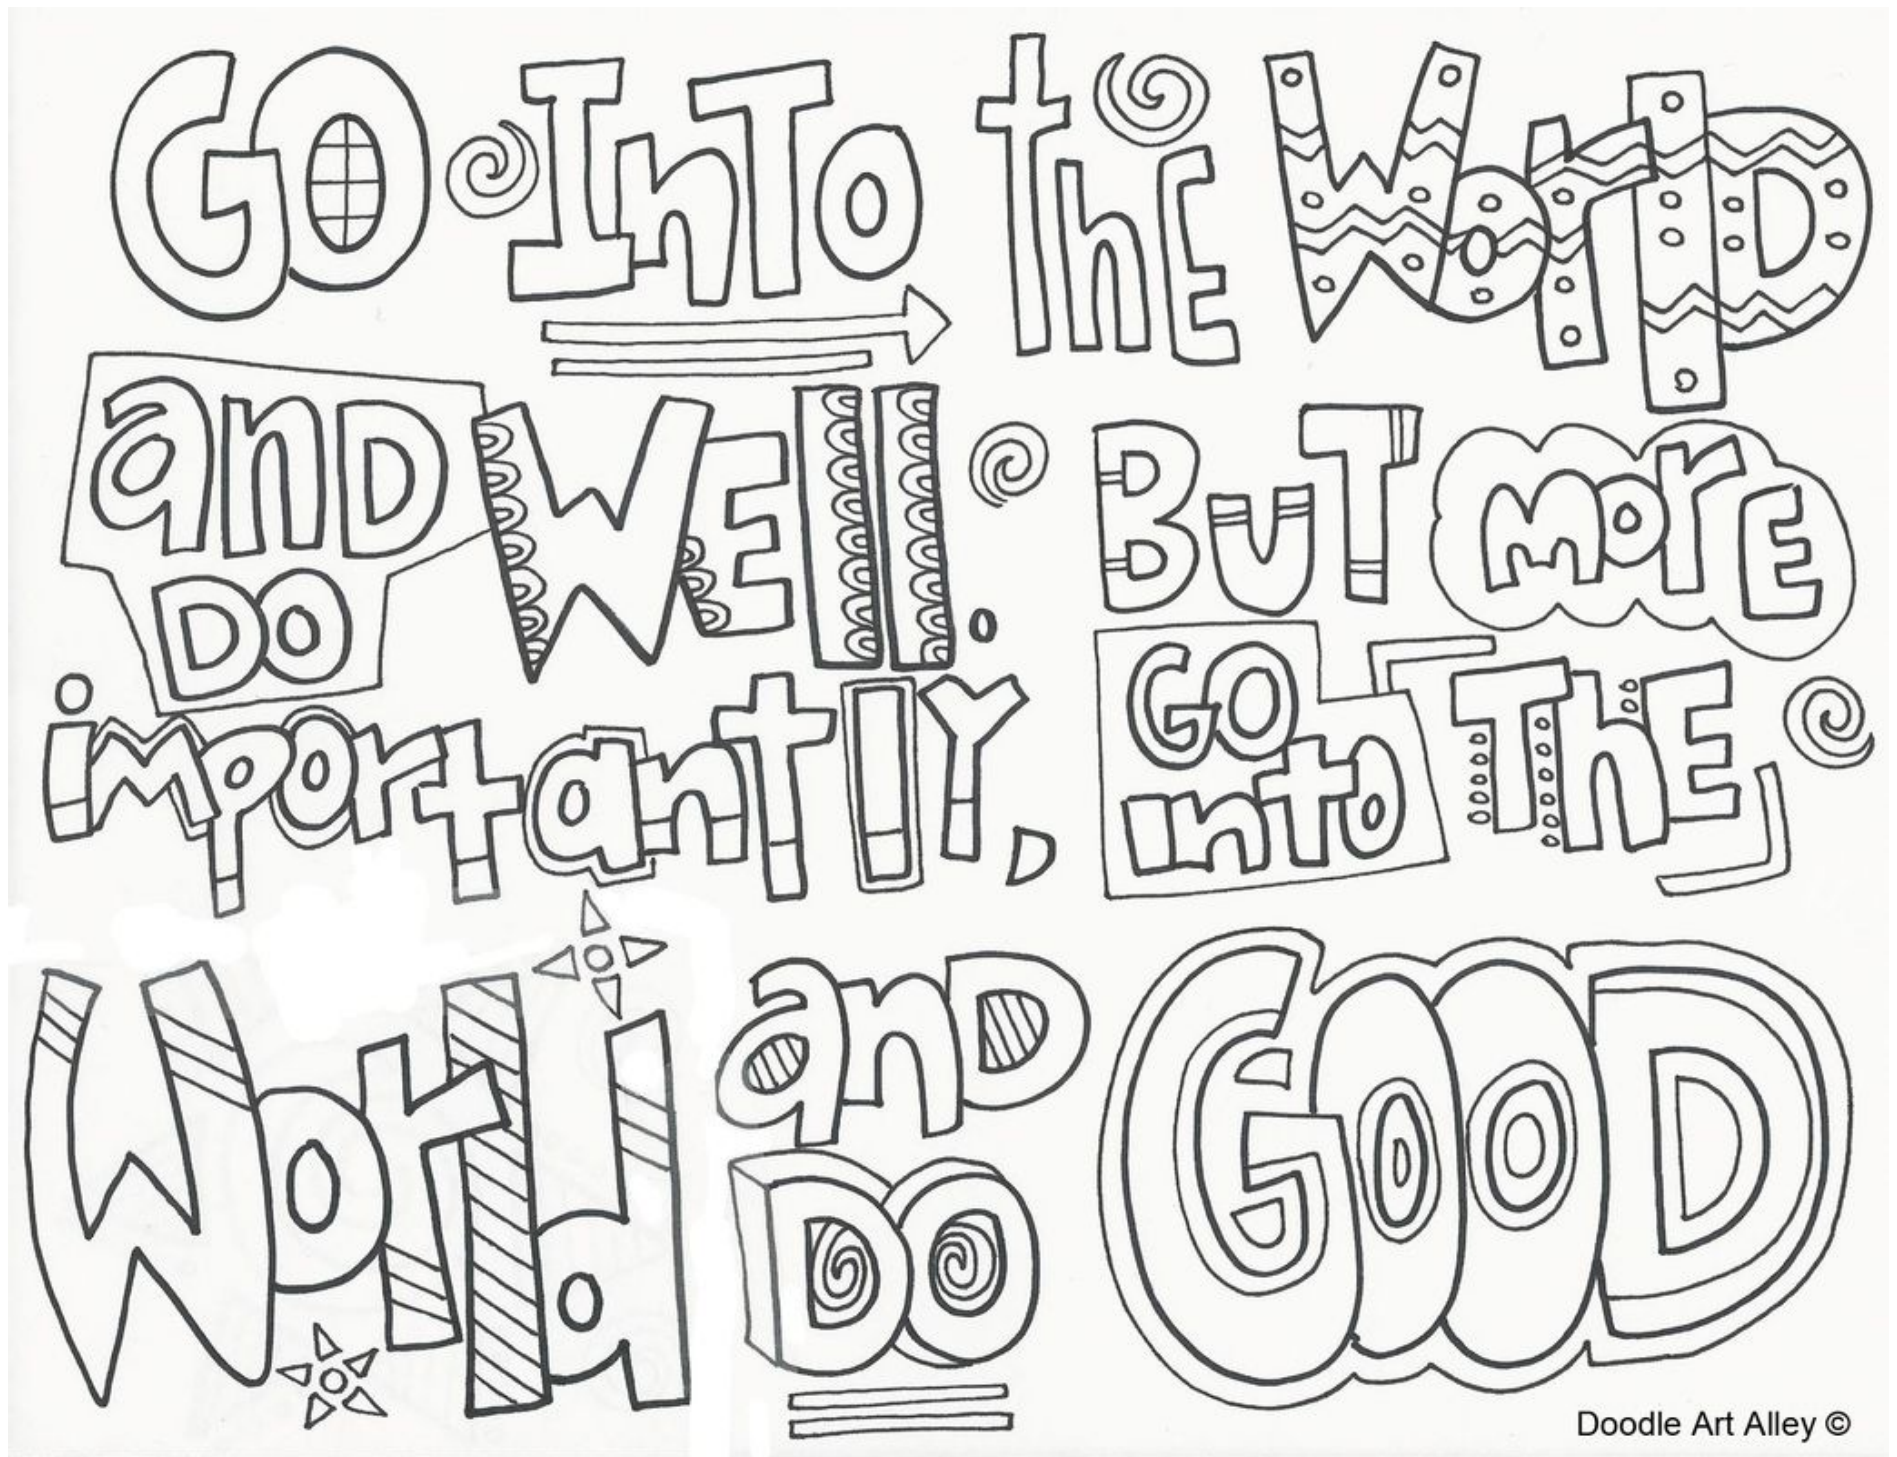 GO InTO thE WorlD
anD DO WEll. BuT morE
importantlY, GO into ThE
World anD DO GOOD
Doodle Art Alley ©